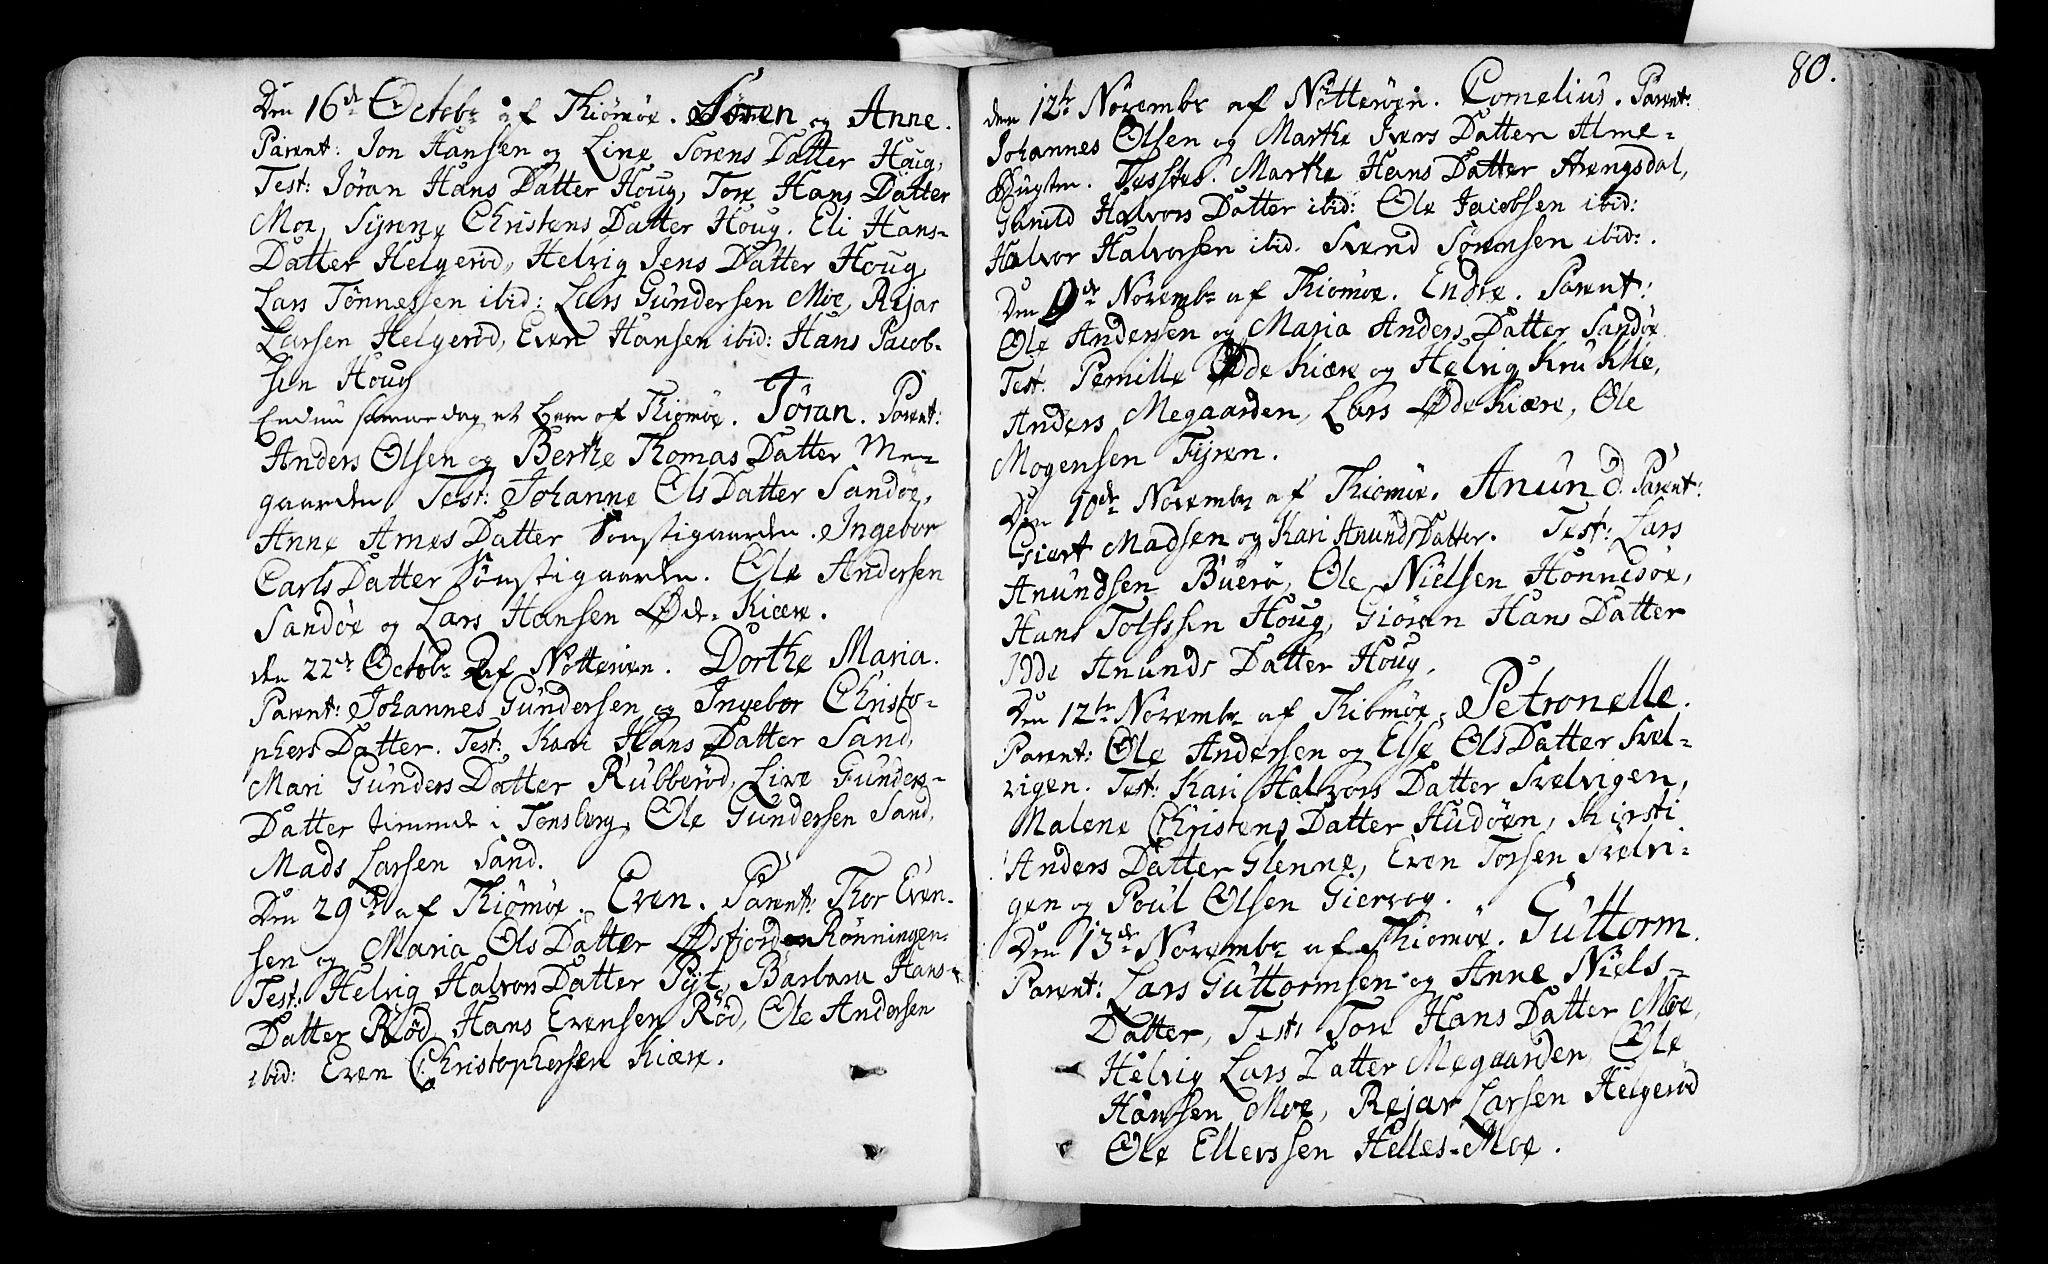 Den 16de Octobr af Thiömöe. Sören og Anne.
Parent: Jon Hansen og Line Sörens Datter Houg,
Test: Jöran Hans Datter Houg, Tore Hans Datter
Moe, Syrene Christens Datter Houg. Eli Hans-
Datter Helgeröd, Helvig Jens Datter Houg,
Lars Tönnessen ibid: Lars Gundersen Moe, Rejar
Larsen Helgeröd, Even Hansen ibid: Hans Jacob-
sen Houg
Endnu samme dag et Barn af Thiömöe. Jöran. Parent:
Anders Olsen og Berthe Thomas Datter Me-
gaarden Test: Johanne Ols Datter Sandöe,
Anne Arnes Datter Sönstigaarden. Ingebor
Carls Datter Sönstigaarden. Ole Andersen
Sandöe og Lars Hansen Øde-Kiære.
den 22de Octobr af Nötteröen. Dorthe Maria.
Parent: Johannes Gundersen og Ingebor Christo-
phers Datter. Test: Kari Hans Datter Sand,
Mari Gunders Datter Rubberöd, Live Gunders-
Datter tienende i Tonsberg, Ole Gundersen Sand,
Mads Larsen Sand.
Den 29de af Thiömöe. Even. Parent: Thor Even-
sen og Maria Ols Datter Øsfjord Rönningen.
Test: Helvig Halvors Datter Pyt, Barbara Hans-
Datter Röd, Hans Evensen Röd, Ole Andersen
ibid: Even Christophersen Kiære.
80.
den 12te Novembr af Nötteröyn. Cornelius. Parent:
Johannes Olsen og Marthe Ivers Datter Alme-
Testes. Marthe Hans Datter Arengsdal,
Gunild Halvors Datter ibid: Ole Jacobsen ibid:
Halvor Halvorsen ibid. Svend Sörensen ibid:.
Den 9de Novembr af Thiömöe. Endre. Parent:
Ole Andersen og Maria Anders Datter Sandöe
Test: Pernille Øde Kiære og Helvig Krukkle,
Anders Megaarden, Lars Øde Kiære, Ole
Mogensen Fyren.
Den 10de Novembr af Thiömöe. Anund. Parent:
Giert Madsen og Kari Anunds Datter. Test: Lars
Anundsen Bueröe, Ole Nielsen Honnesöe,
Hans Tolfssen Houg, Giören Hans Datter
Anunds Datter Houg.
Den 12te Novembr af Thiömöe. Petronelle.
Parent: Ole Andersen og Else Ols Datter Svel-
vigen. Test: Kari Halvors Datter Svelvigen,
Malene Christens Datter Hudöen, Kirsti
Anders Datter Glenne, Even Torsen Svelvi-
gen og Poul Olsen Giervog.
Den 13de Novembr af Thiömöe. Guttorm.
Parent: Lars Guttormsen og Anne Niels-
Datter, Test: Tore Hans Datter Moe,
Helvig Lars Datter Megaarden, Ole
Hanssen Moe, Rejar Larsen Helgeröd
Ole Ellerssen Helles-Moe.